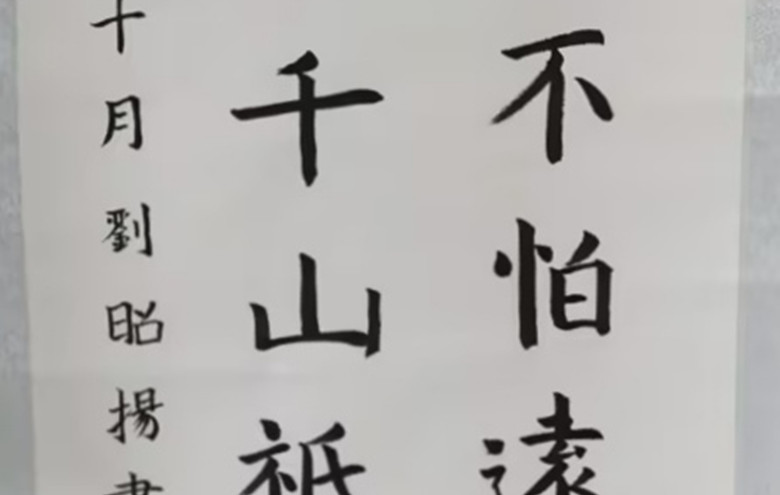 不怕遠
千山祇
十月劉昭揚書